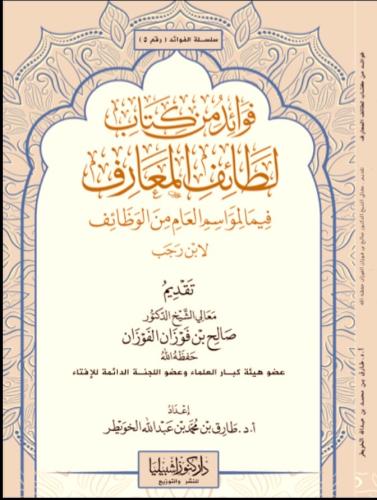 سلسلة الفوائد ( رقم 2 )
فوائد من كتاب
لطائف المعارف
فيما لمواسم العام من الوظائف
لابن رجب
تقديم
معالي الشيخ الدكتور
صالح بن فوزان الفوزان
حفظه الله
عضو هيئة كبار العلماء وعضو اللجنة الدائمة للإفتاء
إعداد
أ.د. طارق بن محمد بن عبدالله الخويطر
دار كنوز إشبيليا
للنشر والتوزيع
فوائد من كتاب لطائف المعارف
تقديم معالي الشيخ الدكتور صالح بن فوزان الفوزان حفظه الله
أ.د. طارق بن محمد بن عبدالله الخويطر